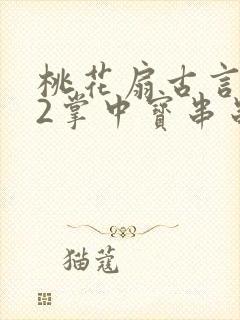 桃花扇古言
2掌中寶串
猫蔻